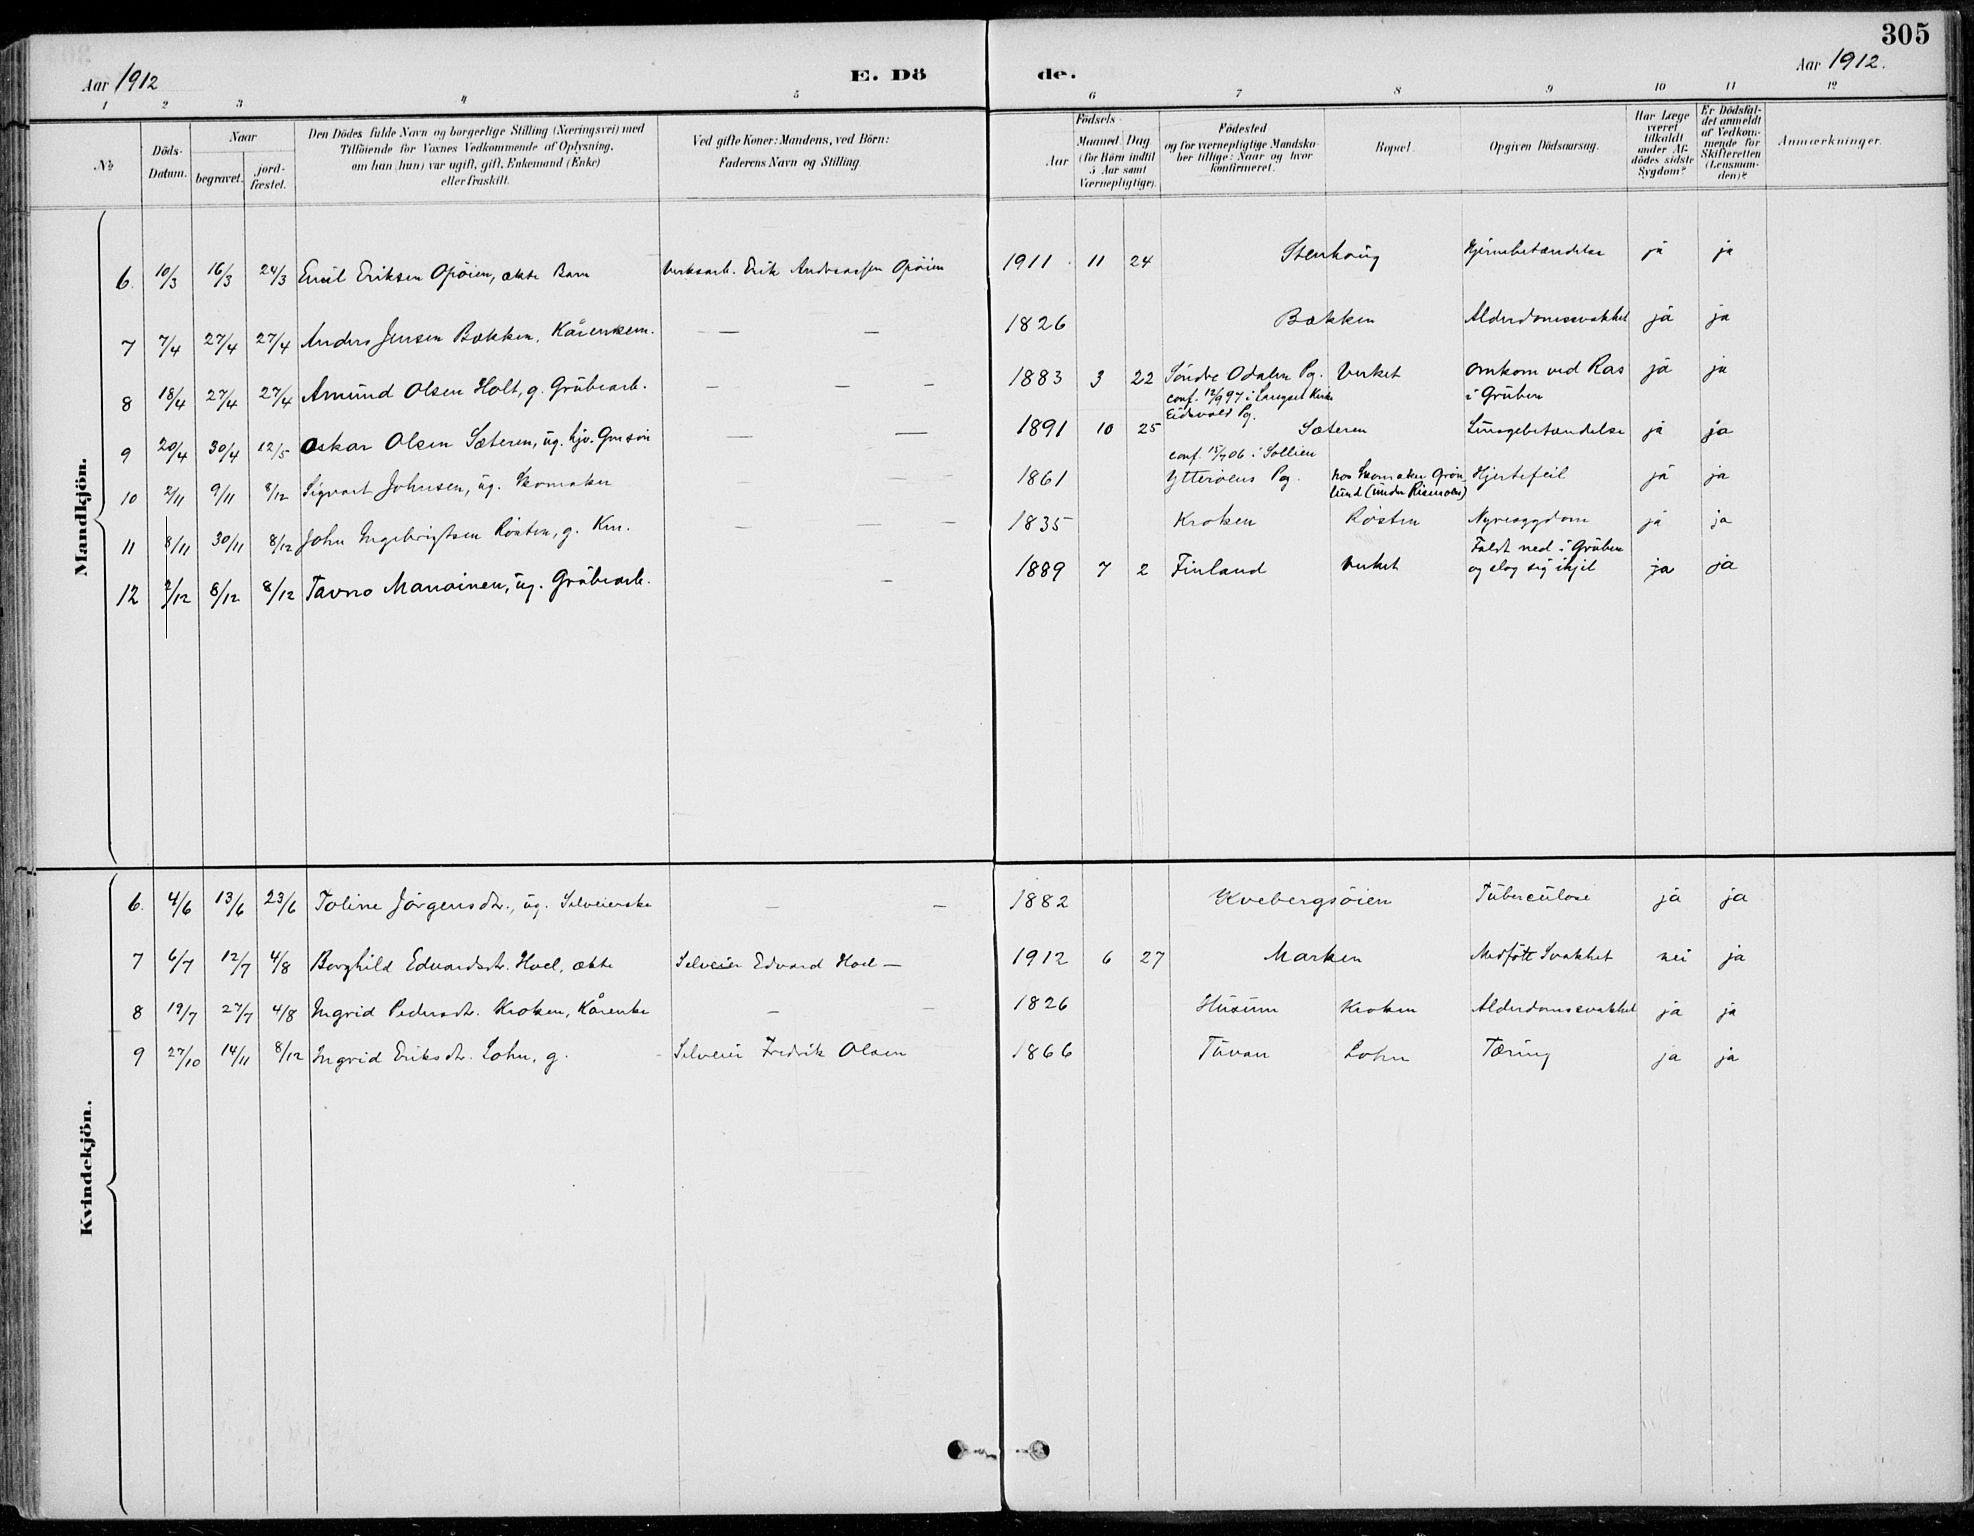 305
Aar 1912 E. Dö de. Aar 1912.
1 2 3 4 5 6 7 8 9 10 11 12
No
Döds-Datum.
Naar
begravet.
jord-fæstet.
Den Dödes fulde Navn og borgerlige Stilling (Næringsvei) med
Tilföiende for Voxnes Vedkommende af Oplysning,
om han (hun) var ugift, gift, Enkemand (Enke)
eller fraskilt.
Ved gifte Koner: Mandens, ved Börn:
Faderens Navn og Stilling.
Födsels-
Aar
Maaned Dag
(for Börn indtil
5 Aar samt
Værnepligtige).
Födested
og for værnepligtige Mandska-
ber tillige: Naar og hvor
konfirmeret.
Bopæl.
Opgiven Dödsaarsag.
Har Læge
været
tilkaldt
under Af-
dödes sidste
Sygdom?
Er Dödsfal-
det anmeldt
af Vedkom-
mende for
Skifteretten
(Lensman-
den)?
Anmærkninger.
Mandkjön.
6. 10/3 16/3 24/3 Emil Eriksen Opöien, ækte Barn Verksarb. Erik Andreassen Opöien 1911 11 24 Stenhaug Hjernebetændelse ja ja
7 7/4 27/4 27/4 Anders Jensen Bækken, Kårenkem. — — 1826 Bækken Alderdomssvakhet ja ja
8 18/4 27/4 27/4 Amund Olsen Holt, g. Grubearb. — — — 1883 3 22 Söndre Odalen Pg. Verket Omkom ved Ras ja ja
conf. 12/9 97 i Langset Kirke i Gruben
Eidsvold Pg.
9 20/4 30/4 12/5 Oskar Olsen Sæteren, ug. hjv. Gmsön — — 1891 10 25 Sæteren Lungebetændelse ja ja
conf. 15/7 06 i Sollien
10 2/11 9/11 8/12 Sigvart Johnsen, ug. Skomaker — — 1861 Ytteröens Pg. hos Skomaker Grön Hjertefeil ja ja
lund (under Rismoen)
11 8/11 30/11 8/12 John Ingebrigtsen Rösten, g. Km. — — — 1835 Kroken Rösten Nyresygdom ja ja
Faldt ned i Gruben
12 2/12 8/12 8/12 Tavno Manainen, ug. Grubearb. — 1889 7 2 Finland Verket og slog sig ihjel ja ja
Kvindekjön.
6. 4/6 13/6 23/6 Toline Jörgensdtr., ug. Selveierske — — 1882 Kvebergsöien Tuberculose ja ja
7 6/7 12/7 4/8 Borghild Edvardsdtr. Hoel, ækte Selveier Edvard Hoel — 1912 6 27 Marken Medfött Svakhet nei ja
8 19/7 27/7 4/8 Ingrid Pedersdtr. Kroken, Kårenke — — 1826 Husum Kroken Alderdomssvakhet ja ja
9 27/10 14/11 8/12 Ingrid Eriksdtr. Lohn, g. Selveier Fredrik Olsen 1866 Tuvan Lohn Tæring ja ja